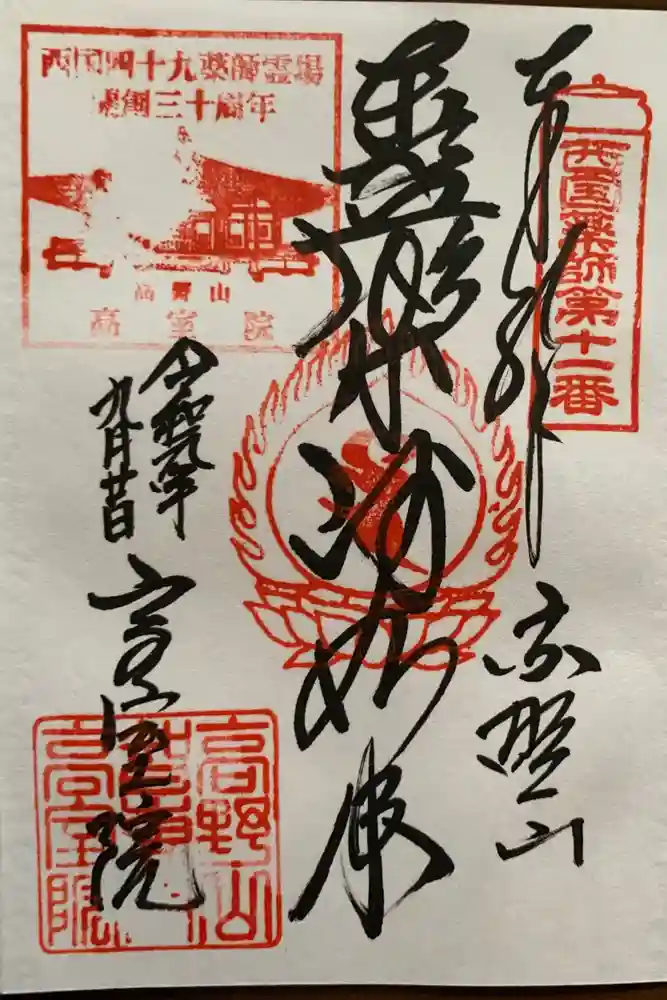 西国薬師第十一番
奉拝
高野山
如来
西国四十九薬師霊場
開創三十周年
高野山
高室院
令和元年
九月廿日
高室院
高野山
高室院